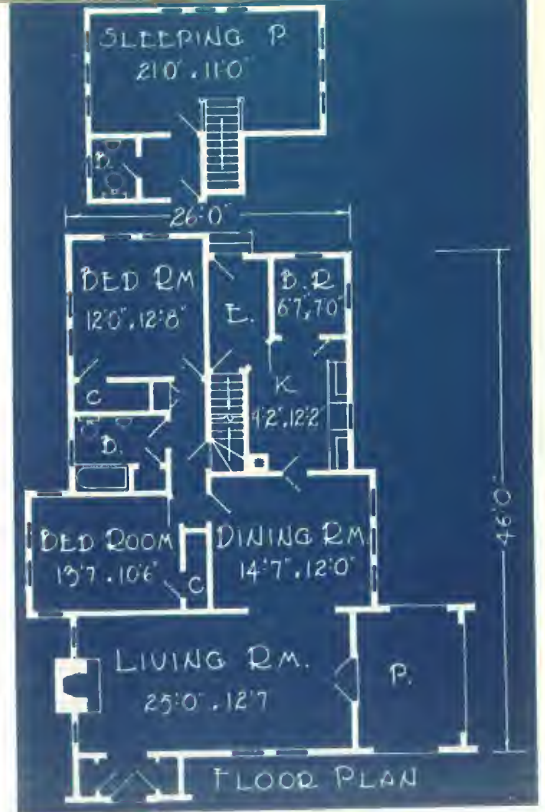 SLEEPING P
21'0" . 11'0"
B.
26'-0"
BED RM
12'0", 12'8"
E.
B.R
6'7", 7'0"
C
K
9'2", 12'2"
B.
46'0"
BED ROOM
13'7 . 10'6"
C
DINING RM.
14'7" , 12'0"
LIVING RM.
25'0" . 12'7
P.
FLOOR PLAN